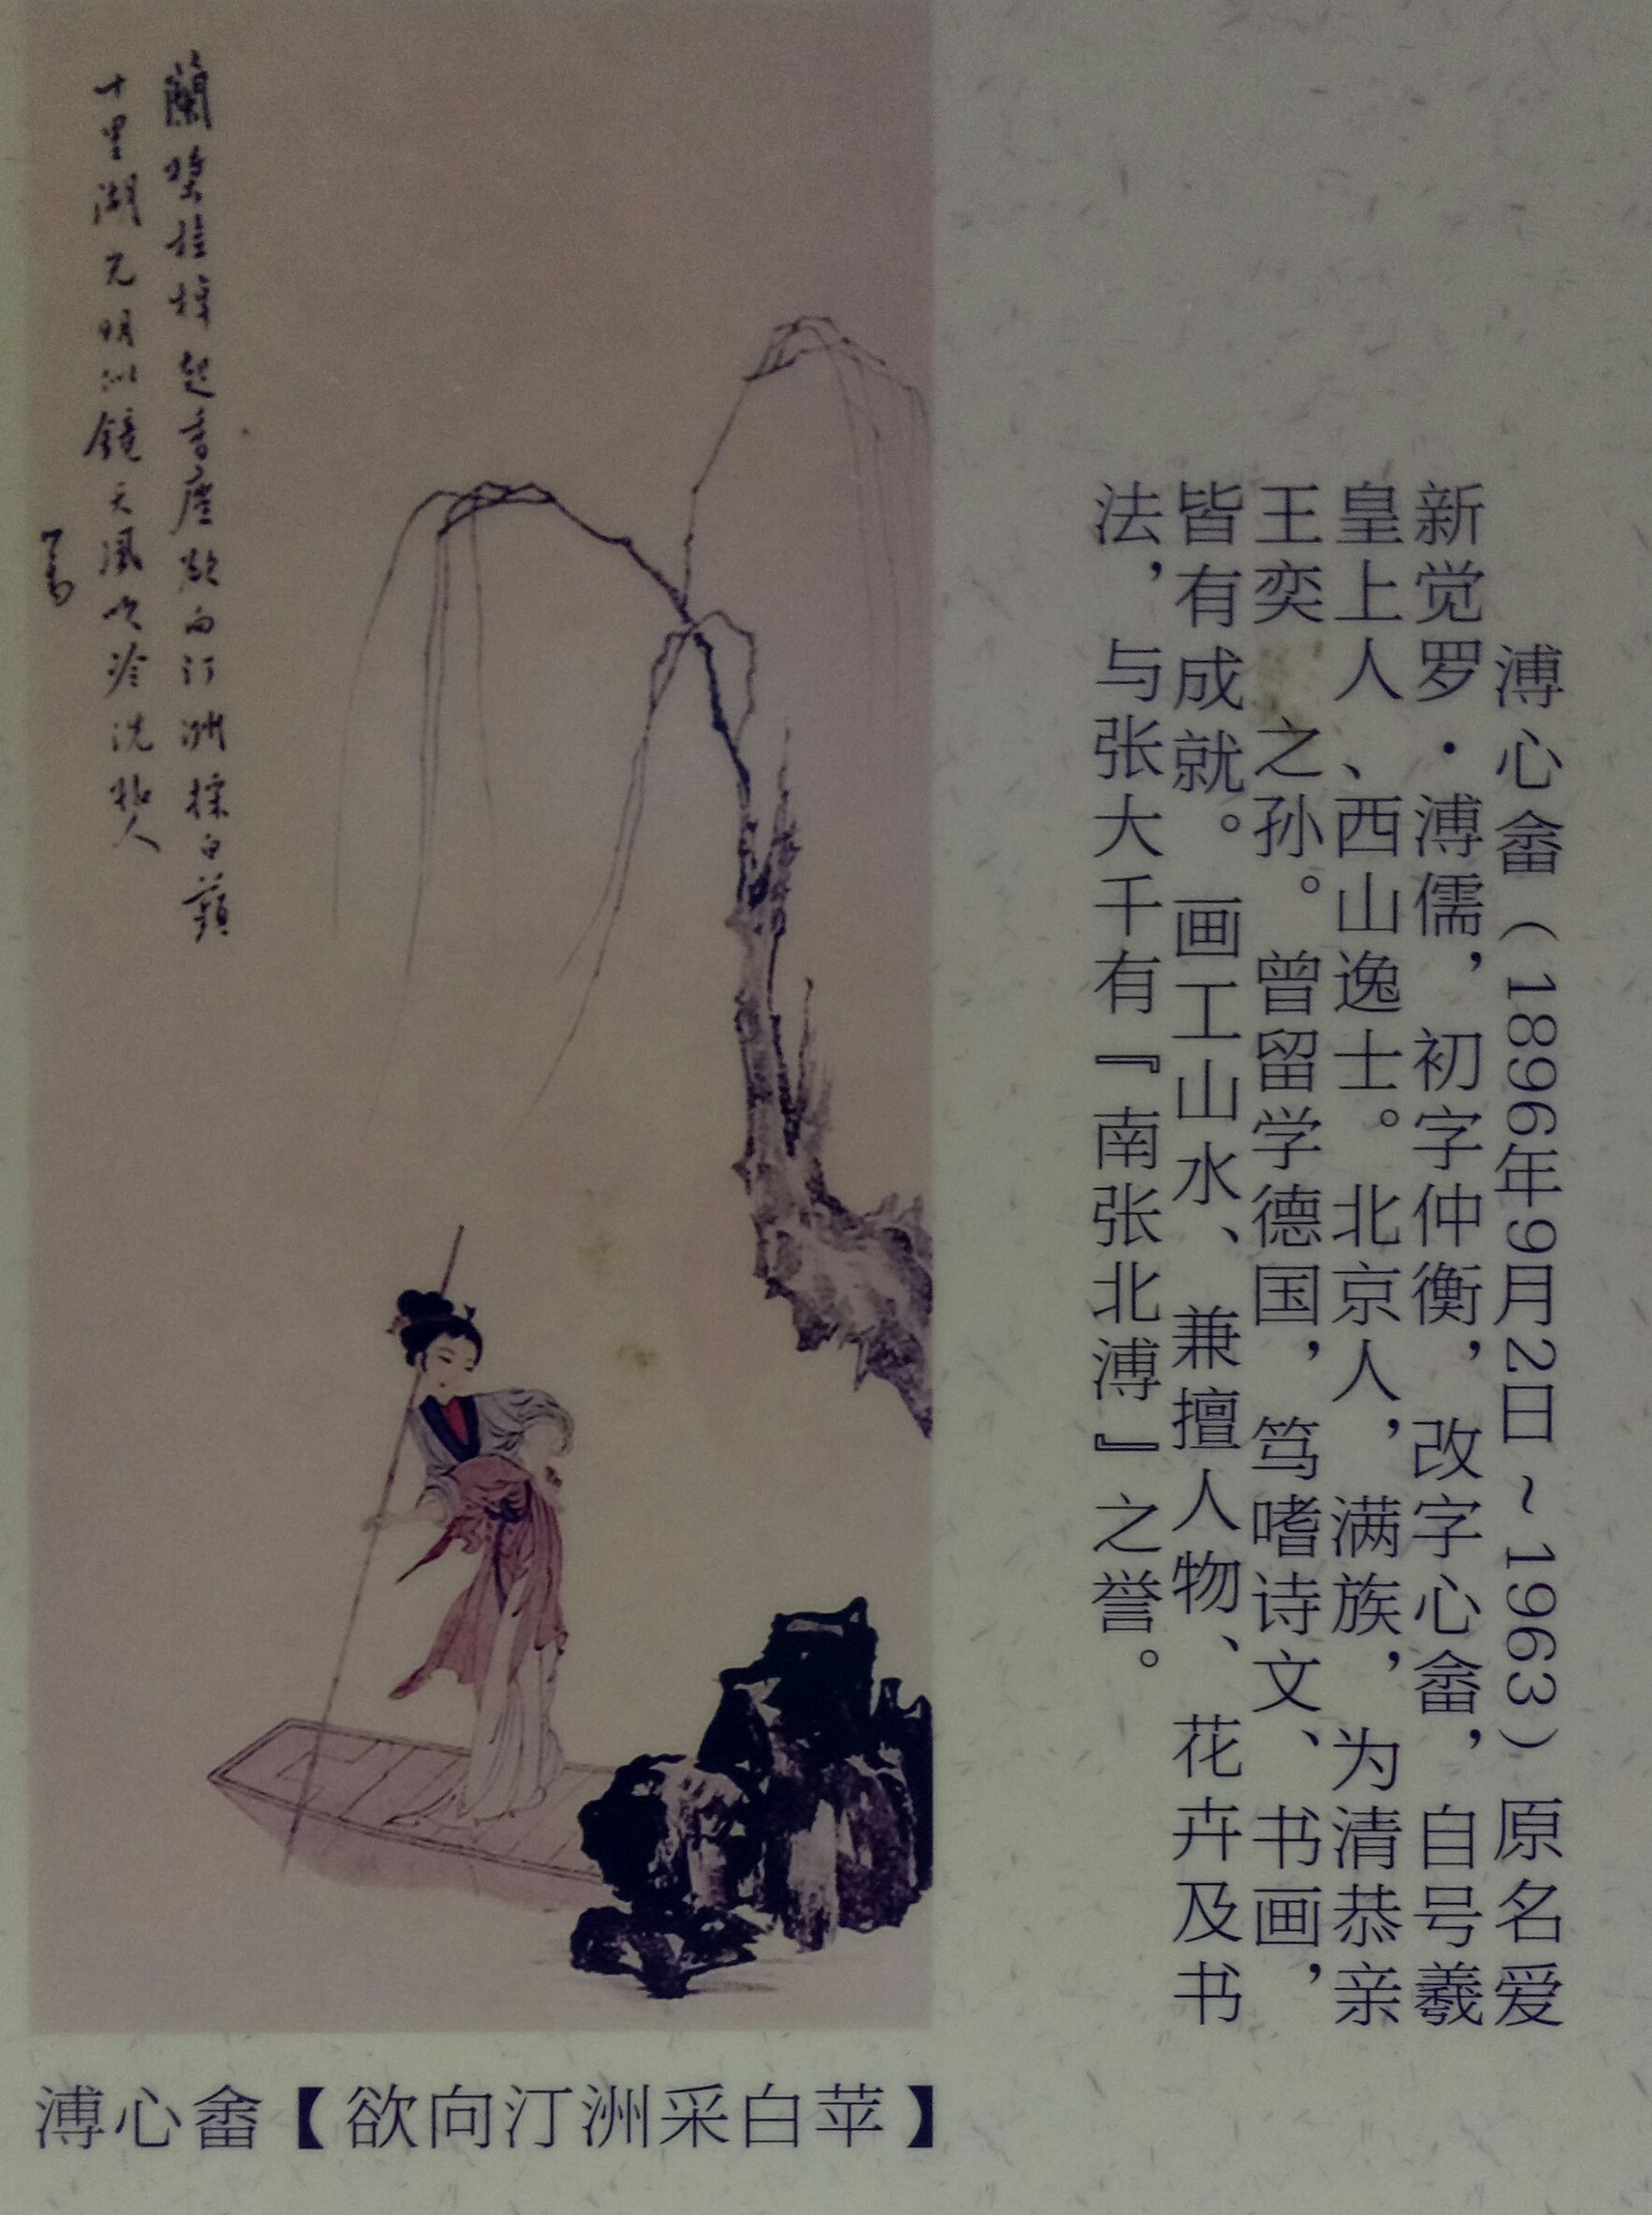 溥心畬（1896年9月2日~1963）原名爱
新觉罗·溥儒，初字仲衡，改字心畬，自号羲
皇上人、西山逸士。北京人，满族，为清恭亲
王奕 之孙。曾留学德国，笃嗜诗文、书画，
皆有成就。画工山水、兼擅人物、花卉及书
法，与张大千有『南张北溥』之誉。
蘭槳桂棹起香塵欲向汀洲採白蘋
十里湖光明似鏡天風吹冷洗 人
溥心畬【欲向汀洲采白苹】